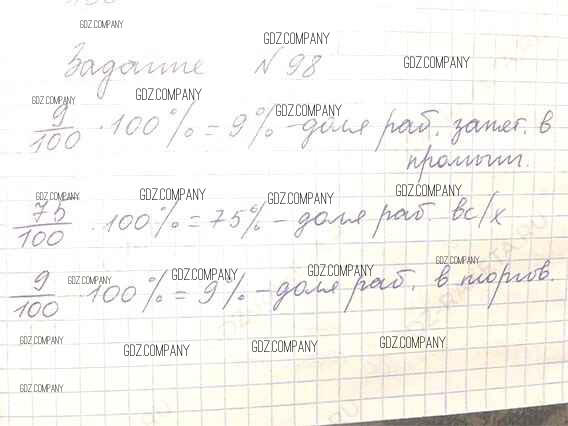 GDZ.COMPANY
GDZ.COMPANY
Задание N 98
GDZ.COMPANY
GDZ.COMPANY
GDZ.COMPANY
GDZ.COMPANY
9/100 · 100% = 9% - доля раб. занят. в
промыш.
GDZ.COMPANY
GDZ.COMPANY
GDZ.COMPANY
GDZ.COMPANY
75/100 · 100% = 75% - доля раб. в с/х
GDZ.COMPANY
GDZ.COMPANY
GDZ.COMPANY
GDZ.COMPANY
9/100 · 100% = 9% - доля раб. в торгов.
GDZ.COMPANY
GDZ.COMPANY
GDZ.COMPANY
GDZ.COMPANY
GDZ.COMPANY